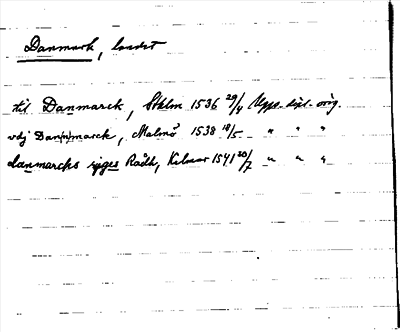 Danmark, landet
til Danmarck, Sthlm 1536 29/4 Upps. dipl. orig.
vdj Dan(n)marck, Malmö 1538 18/5 " " "
danmarcks rijges Rådh, Kalmar 1541 20/7 " " "